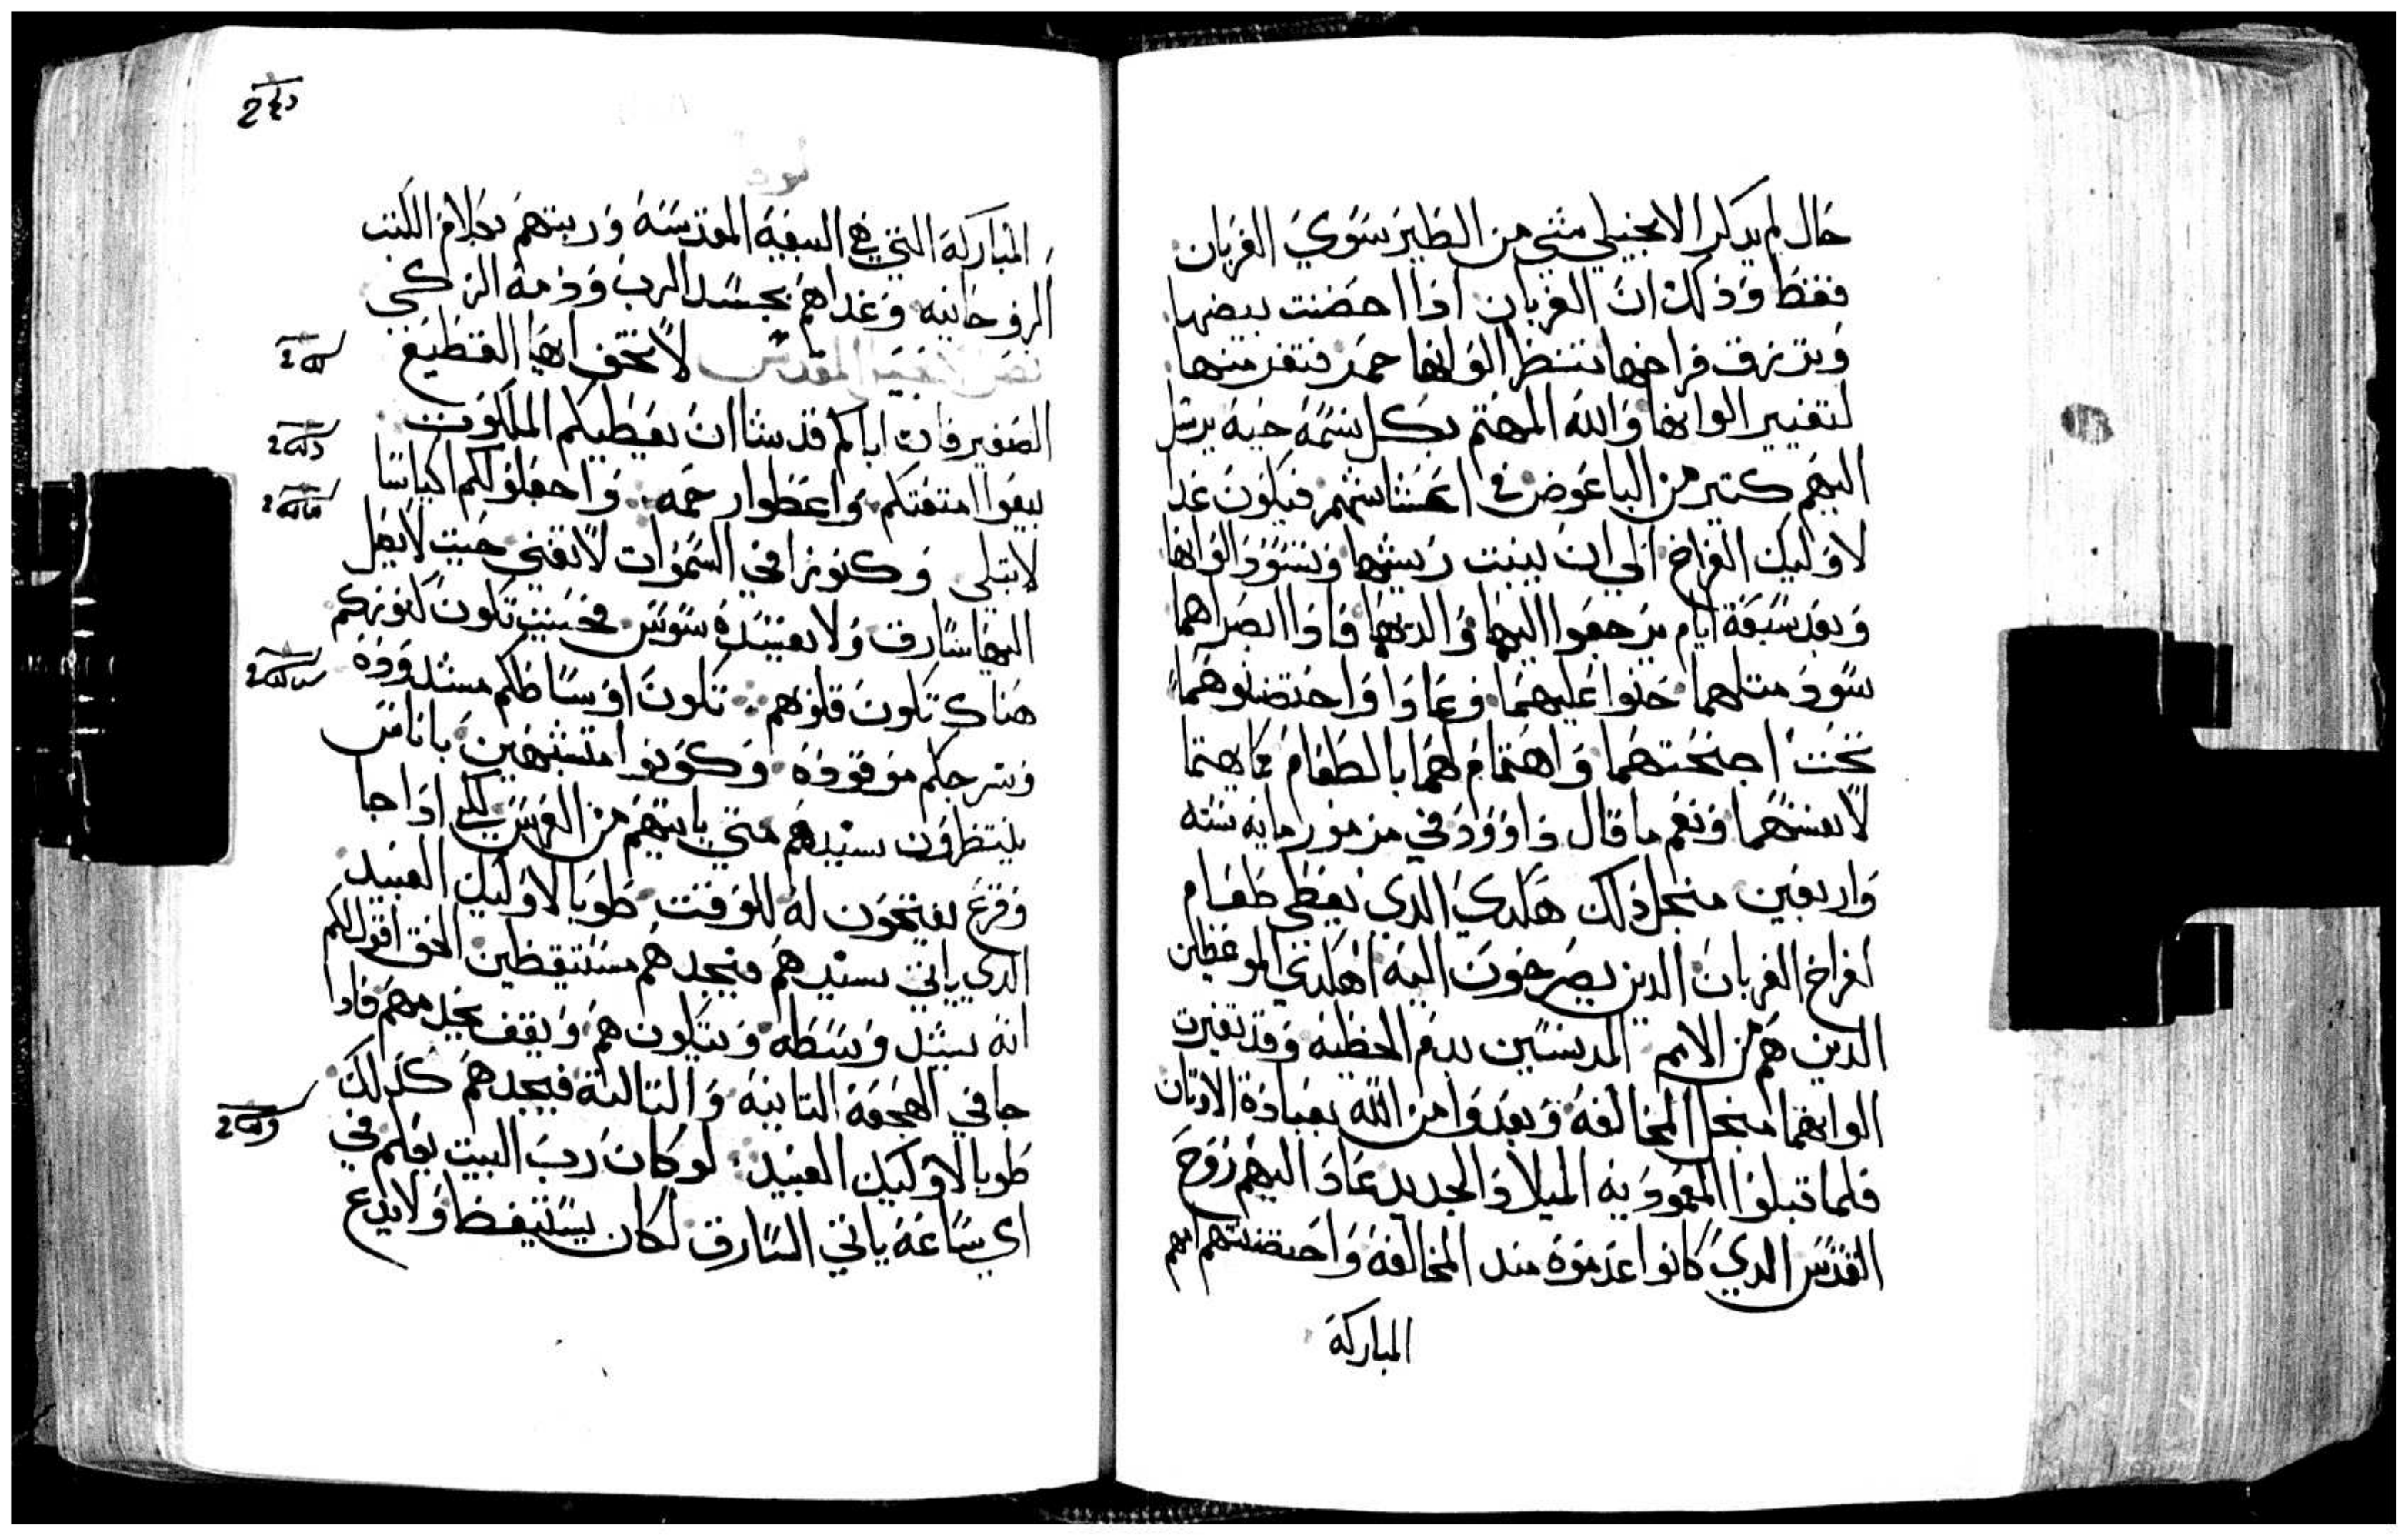 حال لم يدكر الانجيلي شي من الطير سوي الغربان
فقط وذلك ان الغربان اذا احضنت بيضها
وتزرق فراخها تنظر الوانها حمر فتفر منها
لتغيير الوانها والله المهتم بكل نسمة حية يرسل
اليهم كتير من الباعوض في اعشاشهم فيكون غدا
لاوليك الفراخ الي ان ينبت ريشها وتسود الوانها
وبعد سبعة ايام يرجعوا اليها والديها فاذا ابصراهما
سود متلهما حنوا عليهما وعادوا واحتضنوهما
تحت اجنحتهما واهتمام لهما بالطعام مما يهتما
لانفسهما ونعم ما قال داوود في مزمور مايه سته
واربعين منجل ذلك هكدي الدي يعطي طعام
لفراخ الغربان الدين يصرخون اليه اهكدي الموعظين
الدين هم من الامم المدنسين بدم الخطيه وقد تغيرت
الوانهما منجل المخالفه وبعدوا من الله بعبادة الاوتان
فلما قبلوا المعموديه الميلاد الجديد عاد اليهم روح
القدس الدي كانوا عدموه مند المخالفه واحتضنتهم امهم
المباركة
المباركة التي هي البيعة المقدسة وربتهم بكلام الكتب
الروحانيه وغداهم بجسد الرب ودمه الزكي
نص الانجيل المقدس لا تخف ايها القطيع
الصغير فان اباكم قد شا ان يعطيكم الملكوت
بيعوا امتعتكم واعطوا رحمه واجعلوا لكم اكياسا
لا تبلى وكنوزا في السموات لا تفني حيت لا يصل
اليها سارق ولا يفسده سوس فحيت تكون كنوزكم
هناك تكون قلوبهم تكون اوساطكم مشدوده
وسرجكم موقوده وكونوا متشبهين باناس
ينتظرون سيدهم متي ياتيهم من العرس لكي اذا جا
وقرع يفتحون له للوقت طوبا لاوليك العبيد
الدي ياتي سيدهم فيجدهم مستيقظين الحق اقول لكم
انه يشد وسطه ويتكون هم ويقف يخدمهم فادا
جا في الهجعة التانية والتالتة فيجدهم كدلك
طوبا لاوليك العبيد لو كان رب البيت يعلم في
اي ساعة ياتي السارق لكان يستيقظ ولا يدع